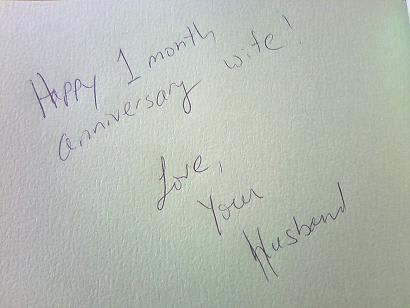 Happy 1 month
anniversary wife!
Love,
Your
Husband